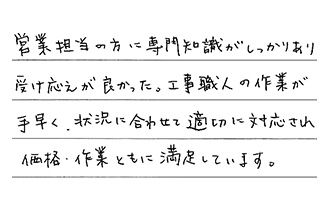 営業担当の方に専門知識がしっかりあり
受け応えが良かった。工事職人の作業が
手早く、状況に合わせて適切に対応され
価格・作業ともに満足しています。